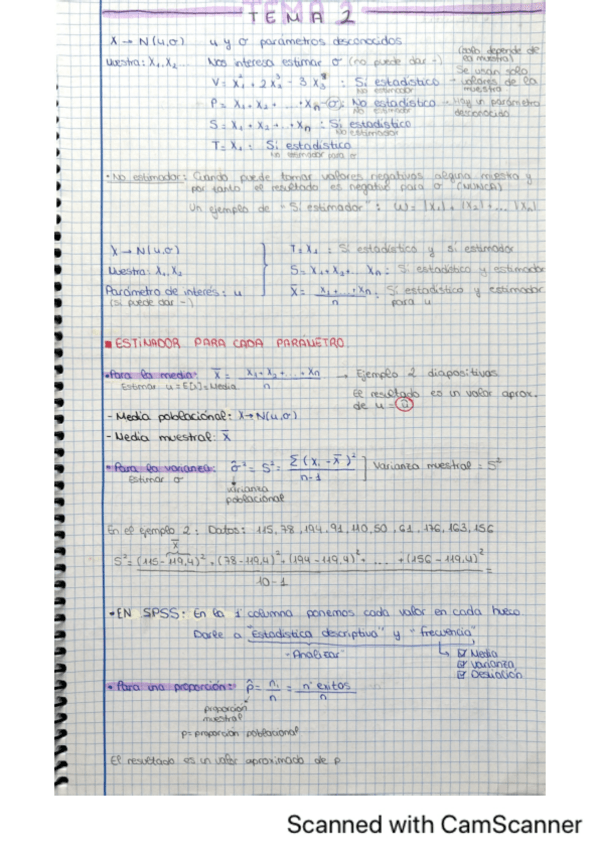 TEMA 2
X → N(u,σ) u y σ parámetros desconocidos
Muestra: X₁, X₂... Nos interesa estimar σ (no puede dar -)
(solo depende de la muestra)
V = X₁² + 2X₂³ - 3X₃⁸ : Sí estadístico → Se usan solo valores de la muestra
No estimador
P = X₁ + X₂ + ... + Xn - σ : No estadístico → Hay un parámetro desconocido
No estimador
S = X₁ + X₂ + ... + Xn : Sí estadístico
No estimador
T = X₁ : Sí estadístico
No estimador para σ
• No estimador: Cuando puede tomar valores negativos alguna muestra y
por tanto el resultado es negativo para σ (NUNCA)
Un ejemplo de "Sí estimador": W = |X₁| + |X₂| + ... |Xn|
X → N(u,σ) T = X₁ : Sí estadístico y sí estimador
Muestra: X₁, X₂ S = X₁ + X₂ + ... Xn : Sí estadístico y estimador
Parámetro de interés: u X̄ = X₁ + ... + Xn / n : Sí estadístico y estimador para u
(Sí puede dar -)
■ ESTIMADOR PARA CADA PARÁMETRO
• Para la media: X̄ = X₁ + X₂ + ... + Xn / n → Ejemplo 2 diapositivas
Estimar u = E[X] = Media El resultado es un valor aprox.
de u = û
- Media poblacional: X → N(u,σ)
- Media muestral: X̄
• Para la varianza: σ̂² = S² = Σ(Xi - X̄)² / n-1 ] Varianza muestral = S²
Estimar σ varianza poblacional
En el ejemplo 2: Datos: 115, 78, 194, 91, 110, 50, 61, 176, 163, 156
X̄
S² = (115 - 119,4)² + (78 - 119,4)² + (194 - 119,4)² + ... + (156 - 119,4)² / 10 - 1 =
• EN SPSS: En la 1ª columna ponemos cada valor en cada hueco
Darle a "Estadística descriptiva" y "frecuencia"
- Analizar" ↳ ☑ Media
☑ Varianza
☑ Desviación
• Para una proporción: p̂ = ni / n = nº éxitos / n
proporción muestral
p = proporción poblacional
El resultado es un valor aproximado de p
Scanned with CamScanner